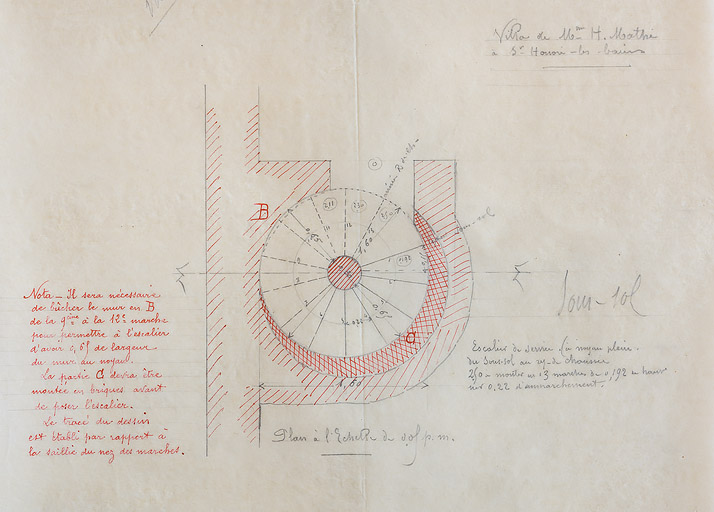 Villa de Mme H. Mathé
à St Honoré-les-bains
B
1,60
0,65
C
1,60
Sous-sol
Nota - Il sera nécessaire
de bûcher le mur en B
de la 9ème à la 12e marche
pour permettre à l'escalier
d'avoir 0,65 de largeur
du mur au noyau.
La partie C devra être
montée en briques avant
de poser l'escalier.
Le tracé du dessin
est établi par rapport à
la saillie du nez des marches.
Escalier de service à noyau plein
du Sous-sol au rez-de-chaussée
2,50 montée en 13 marches de 0,192 de haut
0,22 d'emmarchement.
Plan à l'Echelle de 0,05 p. m.